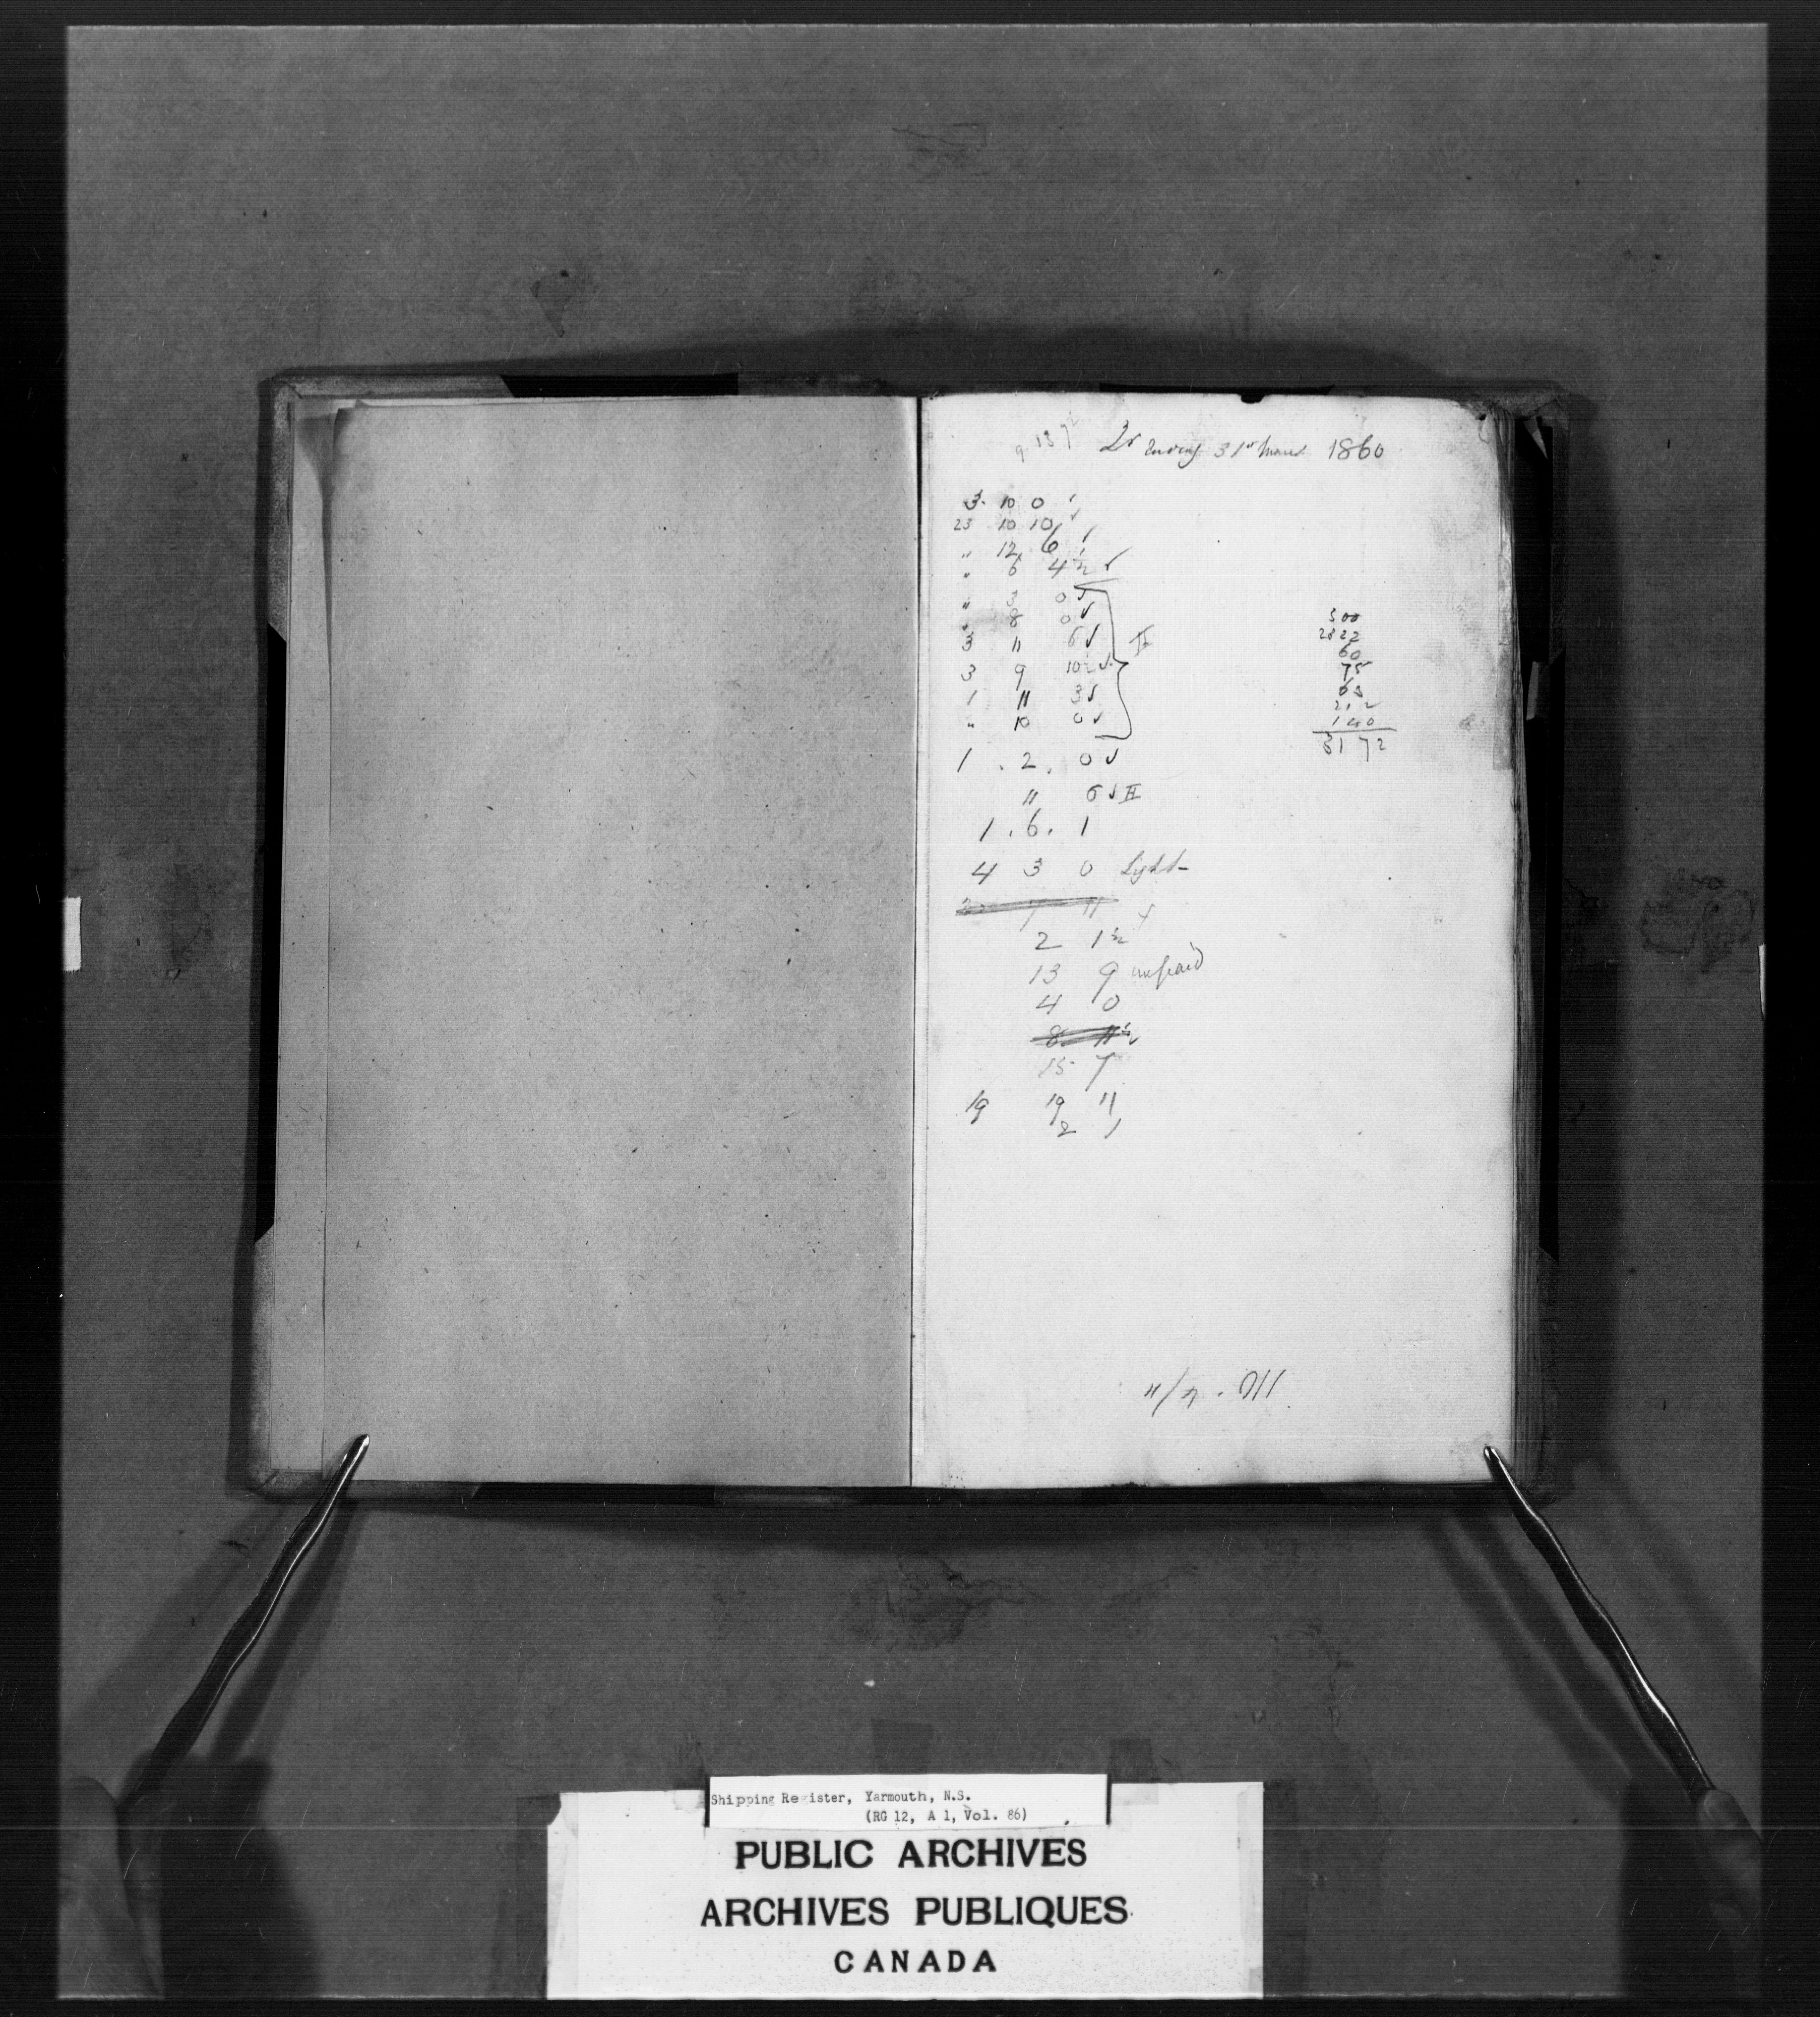 9 13 9
Qr Ending 31st March 1860
3 10 0 ✓
23 10 10 ✓
" 12 6 ✓
" 6 4½ ✓
" 3 0 ✓
" 8 0 ✓
3 11 6 ✓
3 9 10½ ✓
1 11 3 ✓
" 10 0 ✓
1 . 2 . 0 ✓
11 6 ✓
1 . 6 . 1
4 3 0 Light
7 11
2 1½
13 9 unpaid
4 0
8 11½
15 7
19 19 11
2 1
500
2822
60
75
63
212
140
3172
Shipping Register, Yarmouth, N.S.
(RG 12, A 1, Vol. 86)
PUBLIC ARCHIVES
ARCHIVES PUBLIQUES
CANADA